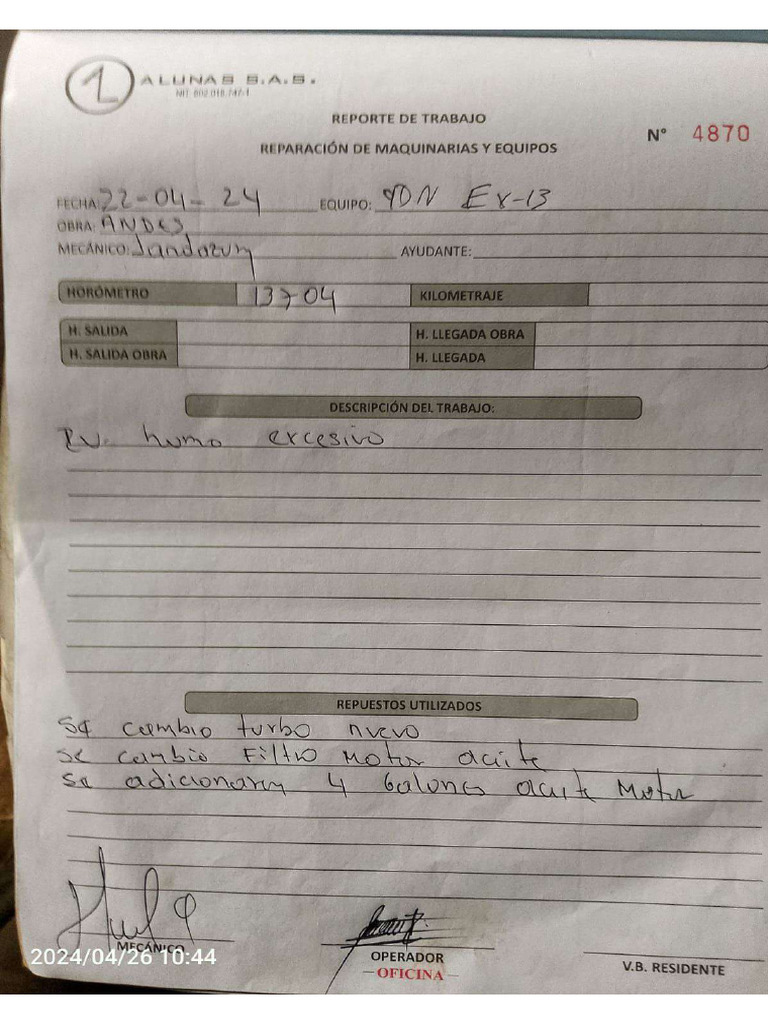 1 ALUNAS S.A.S.
NIT. 802.018.747-1
REPORTE DE TRABAJO
REPARACIÓN DE MAQUINARIAS Y EQUIPOS
N° 4870
FECHA: 22-04-24 EQUIPO: Ex-13
OBRA: ANDES
MECÁNICO: AYUDANTE:
HORÓMETRO 13704 KILOMETRAJE
H. SALIDA H. LLEGADA OBRA
H. SALIDA OBRA H. LLEGADA
DESCRIPCIÓN DEL TRABAJO:
humo excesivo
REPUESTOS UTILIZADOS
Se cambio turbo nuevo
Se cambio Filtro Motor aceite
Se adicionaron 4 Galones aceite Motor
MECÁNICO
OPERADOR
OFICINA
V.B. RESIDENTE
2024/04/26 10:44